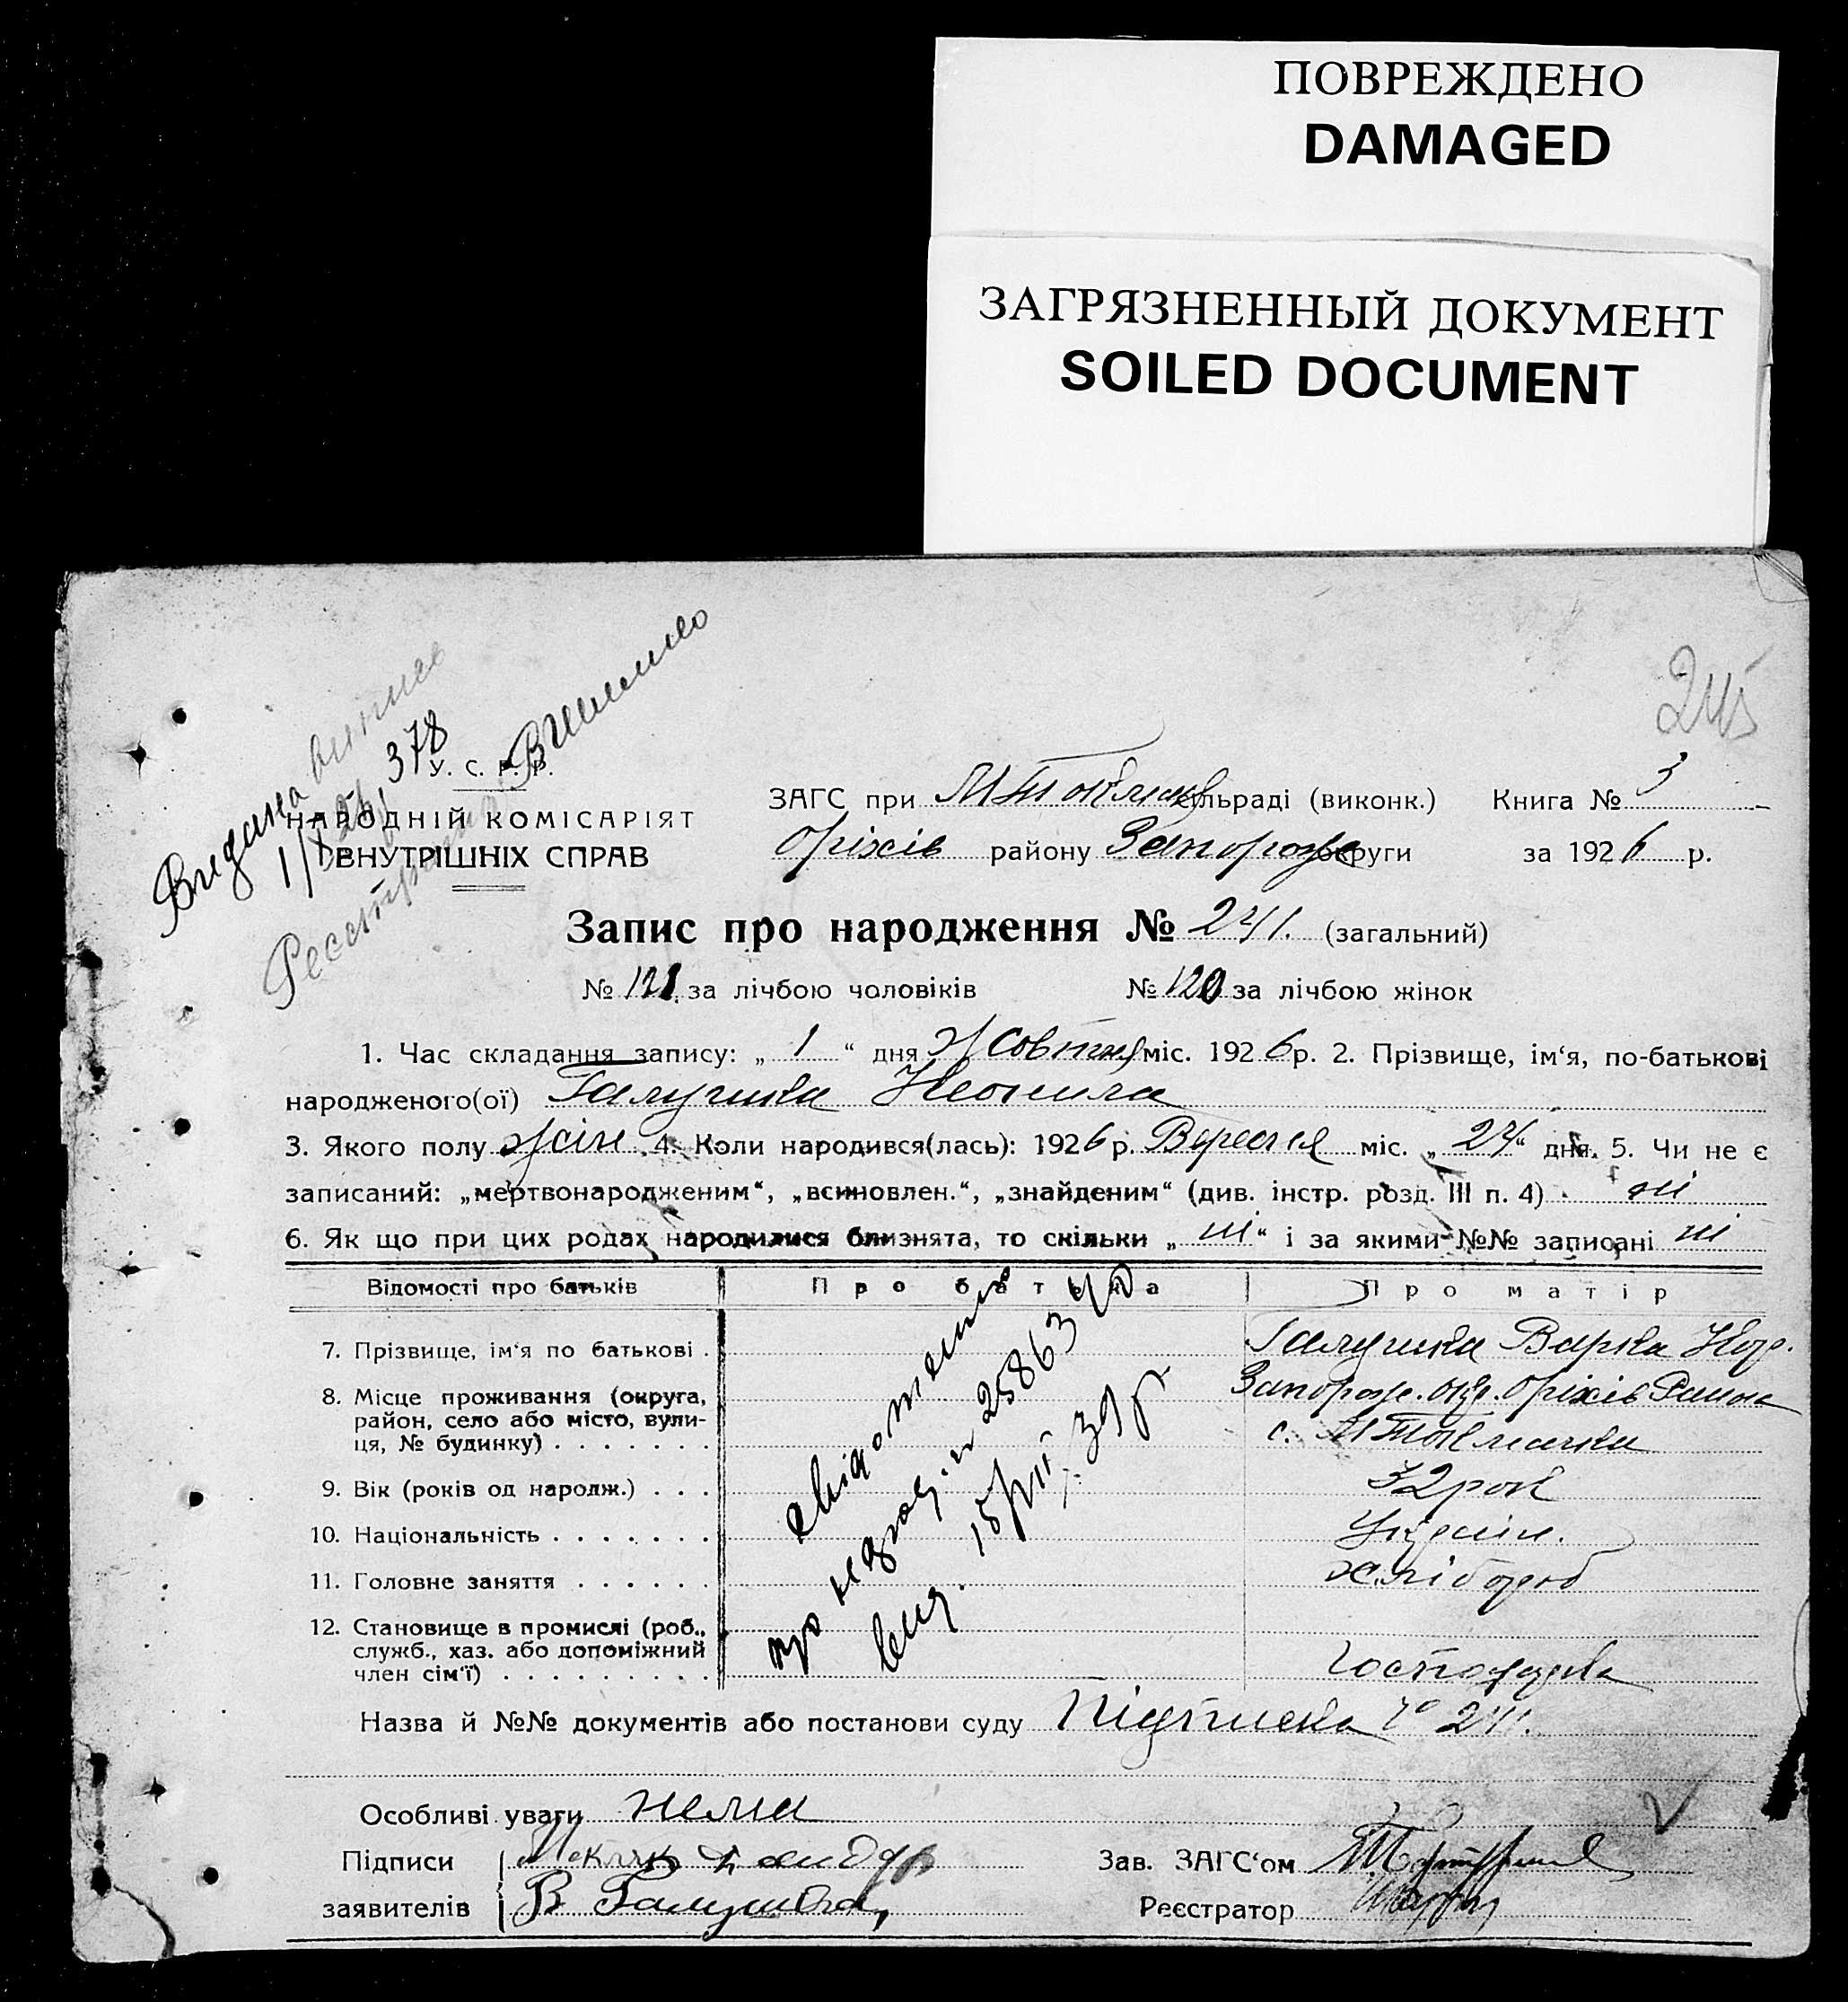 ПОВРЕЖДЕНО
DAMAGED
ЗАГРЯЗНЕННЫЙ ДОКУМЕНТ
SOILED DOCUMENT
245
Видана виписк
378
У. С. Р. Р.
НАРОДНІЙ КОМІСАРІЯТ
ВНУТРІШНІХ СПРАВ
ЗАГС при М Токмац сільраді (виконк.) Книга № 3
Оріхів району Запорозьк округи за 1926 р.
Запис про народження № 241. (загальний)
№ 121 за лічбою чоловіків № 120 за лічбою жінок
1. Час складання запису: „ 1 “ дня Жовтня міс. 1926 р. 2. Прізвище, ім‘я, по-батькові
народженого(ої) Галушка Неонила
3. Якого полу жін. 4. Коли народився(лась): 1926 р. Вересня міс. „ 24 “ дня. 5. Чи не є
записаний: „мертвонародженим“, „всиновлен.“, „знайденим“ (див. інстр. розд. III п. 4) ні
6. Як що при цих родах народилися близнята, то скільки „ ні “ і за якими №№ записані ні
Відомості про батьків Про батька Про матір
7. Прізвище, ім‘я по батькові . Галушка Варка
8. Місце проживання (округа, Запорозь. окр. Оріхів Район
район, село або місто, вули-
ця, № будинку) . . . . . . . с. М Токмачка
9. Вік (років од народж.) . . . 32 рок
10. Національність . . . . . . . Україн.
11. Головне заняття . . . . . . хлібороб
12. Становище в промислі (роб.,
служб., хаз. або допоміжний
член сім‘ї) . . . . . . . . . Господарка
про народ. 25863
вид. 39 р
Назва й №№ документів або постанови суду Підписка № 241.
Особливі уваги нема
Підписи Зав. ЗАГС‘ом
заявителів В Галушка Реєстратор